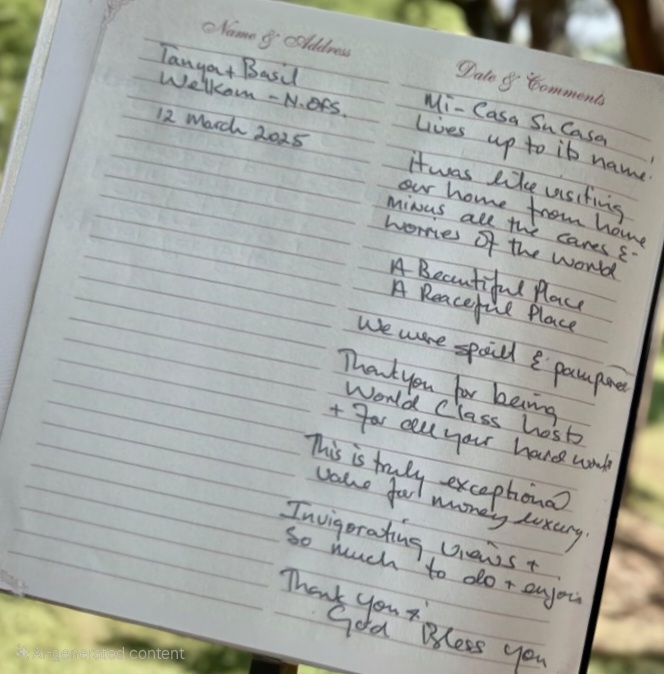 Name & Address
Tanya + Basil
Welkom - N.OFS.
12 March 2025
Date & Comments
Mi-Casa Su Casa
Lives up to its name!
it was like visiting
our home from home
minus all the cares &
worries of the world
A Beautiful Place
A Peaceful Place
We were spoilt & pampered
Thank you for being
World Class hosts
+ for all your hard work
This is truly exceptional
value for money luxury.
Invigorating views +
So much to do + enjoy
Thank you &
God Bless you
AI-generated content